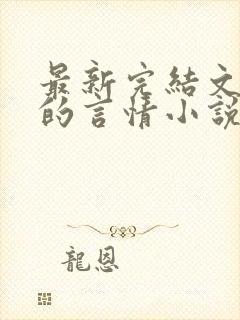 最新完結文
的言情小說
龍恩